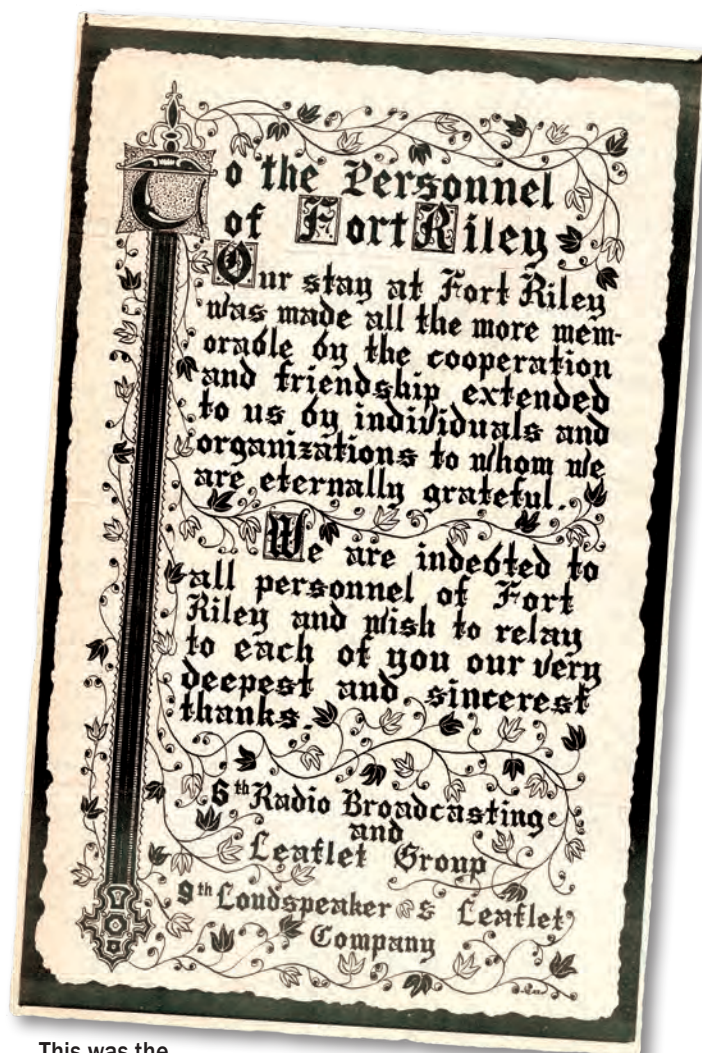 To the Personnel
of Fort Riley
Our stay at Fort Riley
was made all the more mem-
orable by the cooperation
and friendship extended
to us by individuals and
organizations to whom we
are eternally grateful.
We are indebted to
all personnel of Fort
Riley and wish to relay
to each of you our very
deepest and sincerest
thanks.
6th Radio Broadcasting
and
Leaflet Group
9th Loudspeaker & Leaflet
Company
This was the